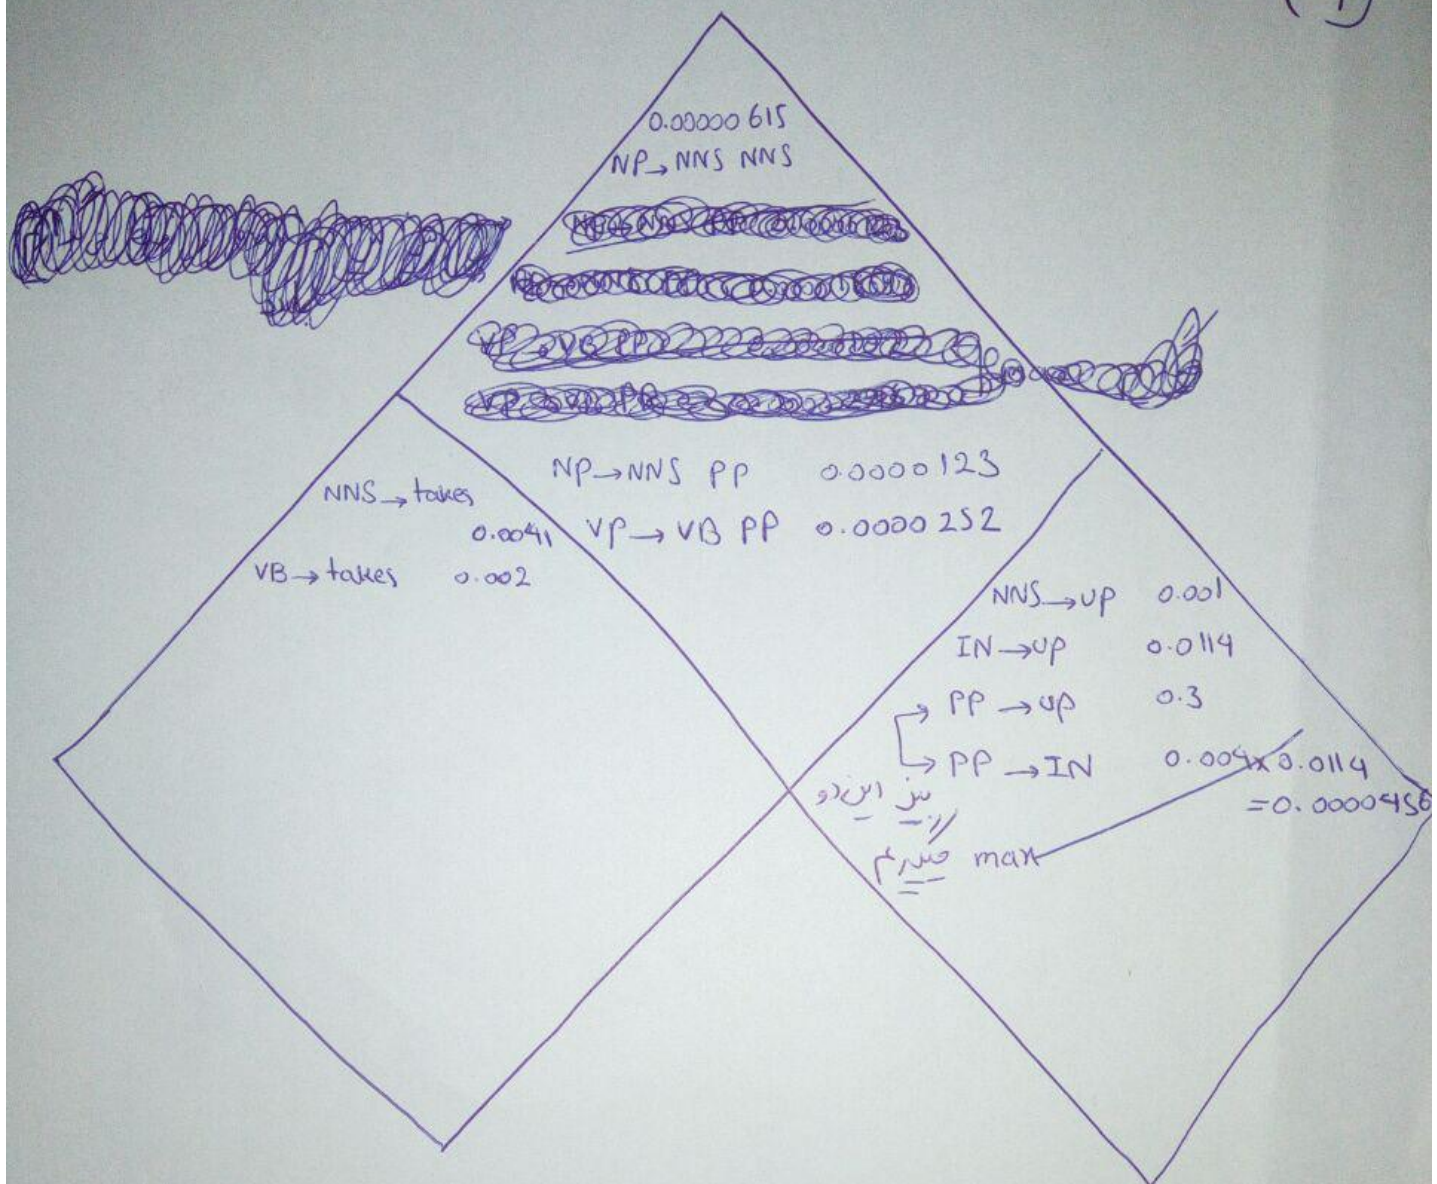 (1)
0.00000615
NP→NNS NNS
NP→NNS PP 0.0000123
VP→VB PP 0.0000252
NNS→takes
0.0041
VB→takes 0.002
NNS→up 0.001
IN→up 0.0114
PP→up 0.3
PP→IN 0.004x0.0114
=0.0000456
بین این دو
max میگیریم